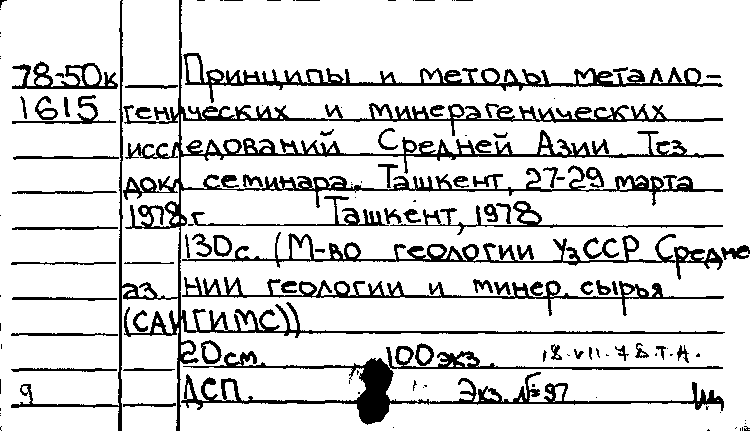 78-50к Принципы и методы металло-
1615 генических и минерагенических
исследований Средней Азии Тез
докл семинара. Ташкент, 27-29 марта
1978 г. Ташкент, 1978
130с. (М-во геологии УзССР Средне
аз. НИИ геологии и минер. сырья
(САИГИМС))
20см. 100экз. 18.VII.78.Т.А.
9 ДСП. Экз. №97